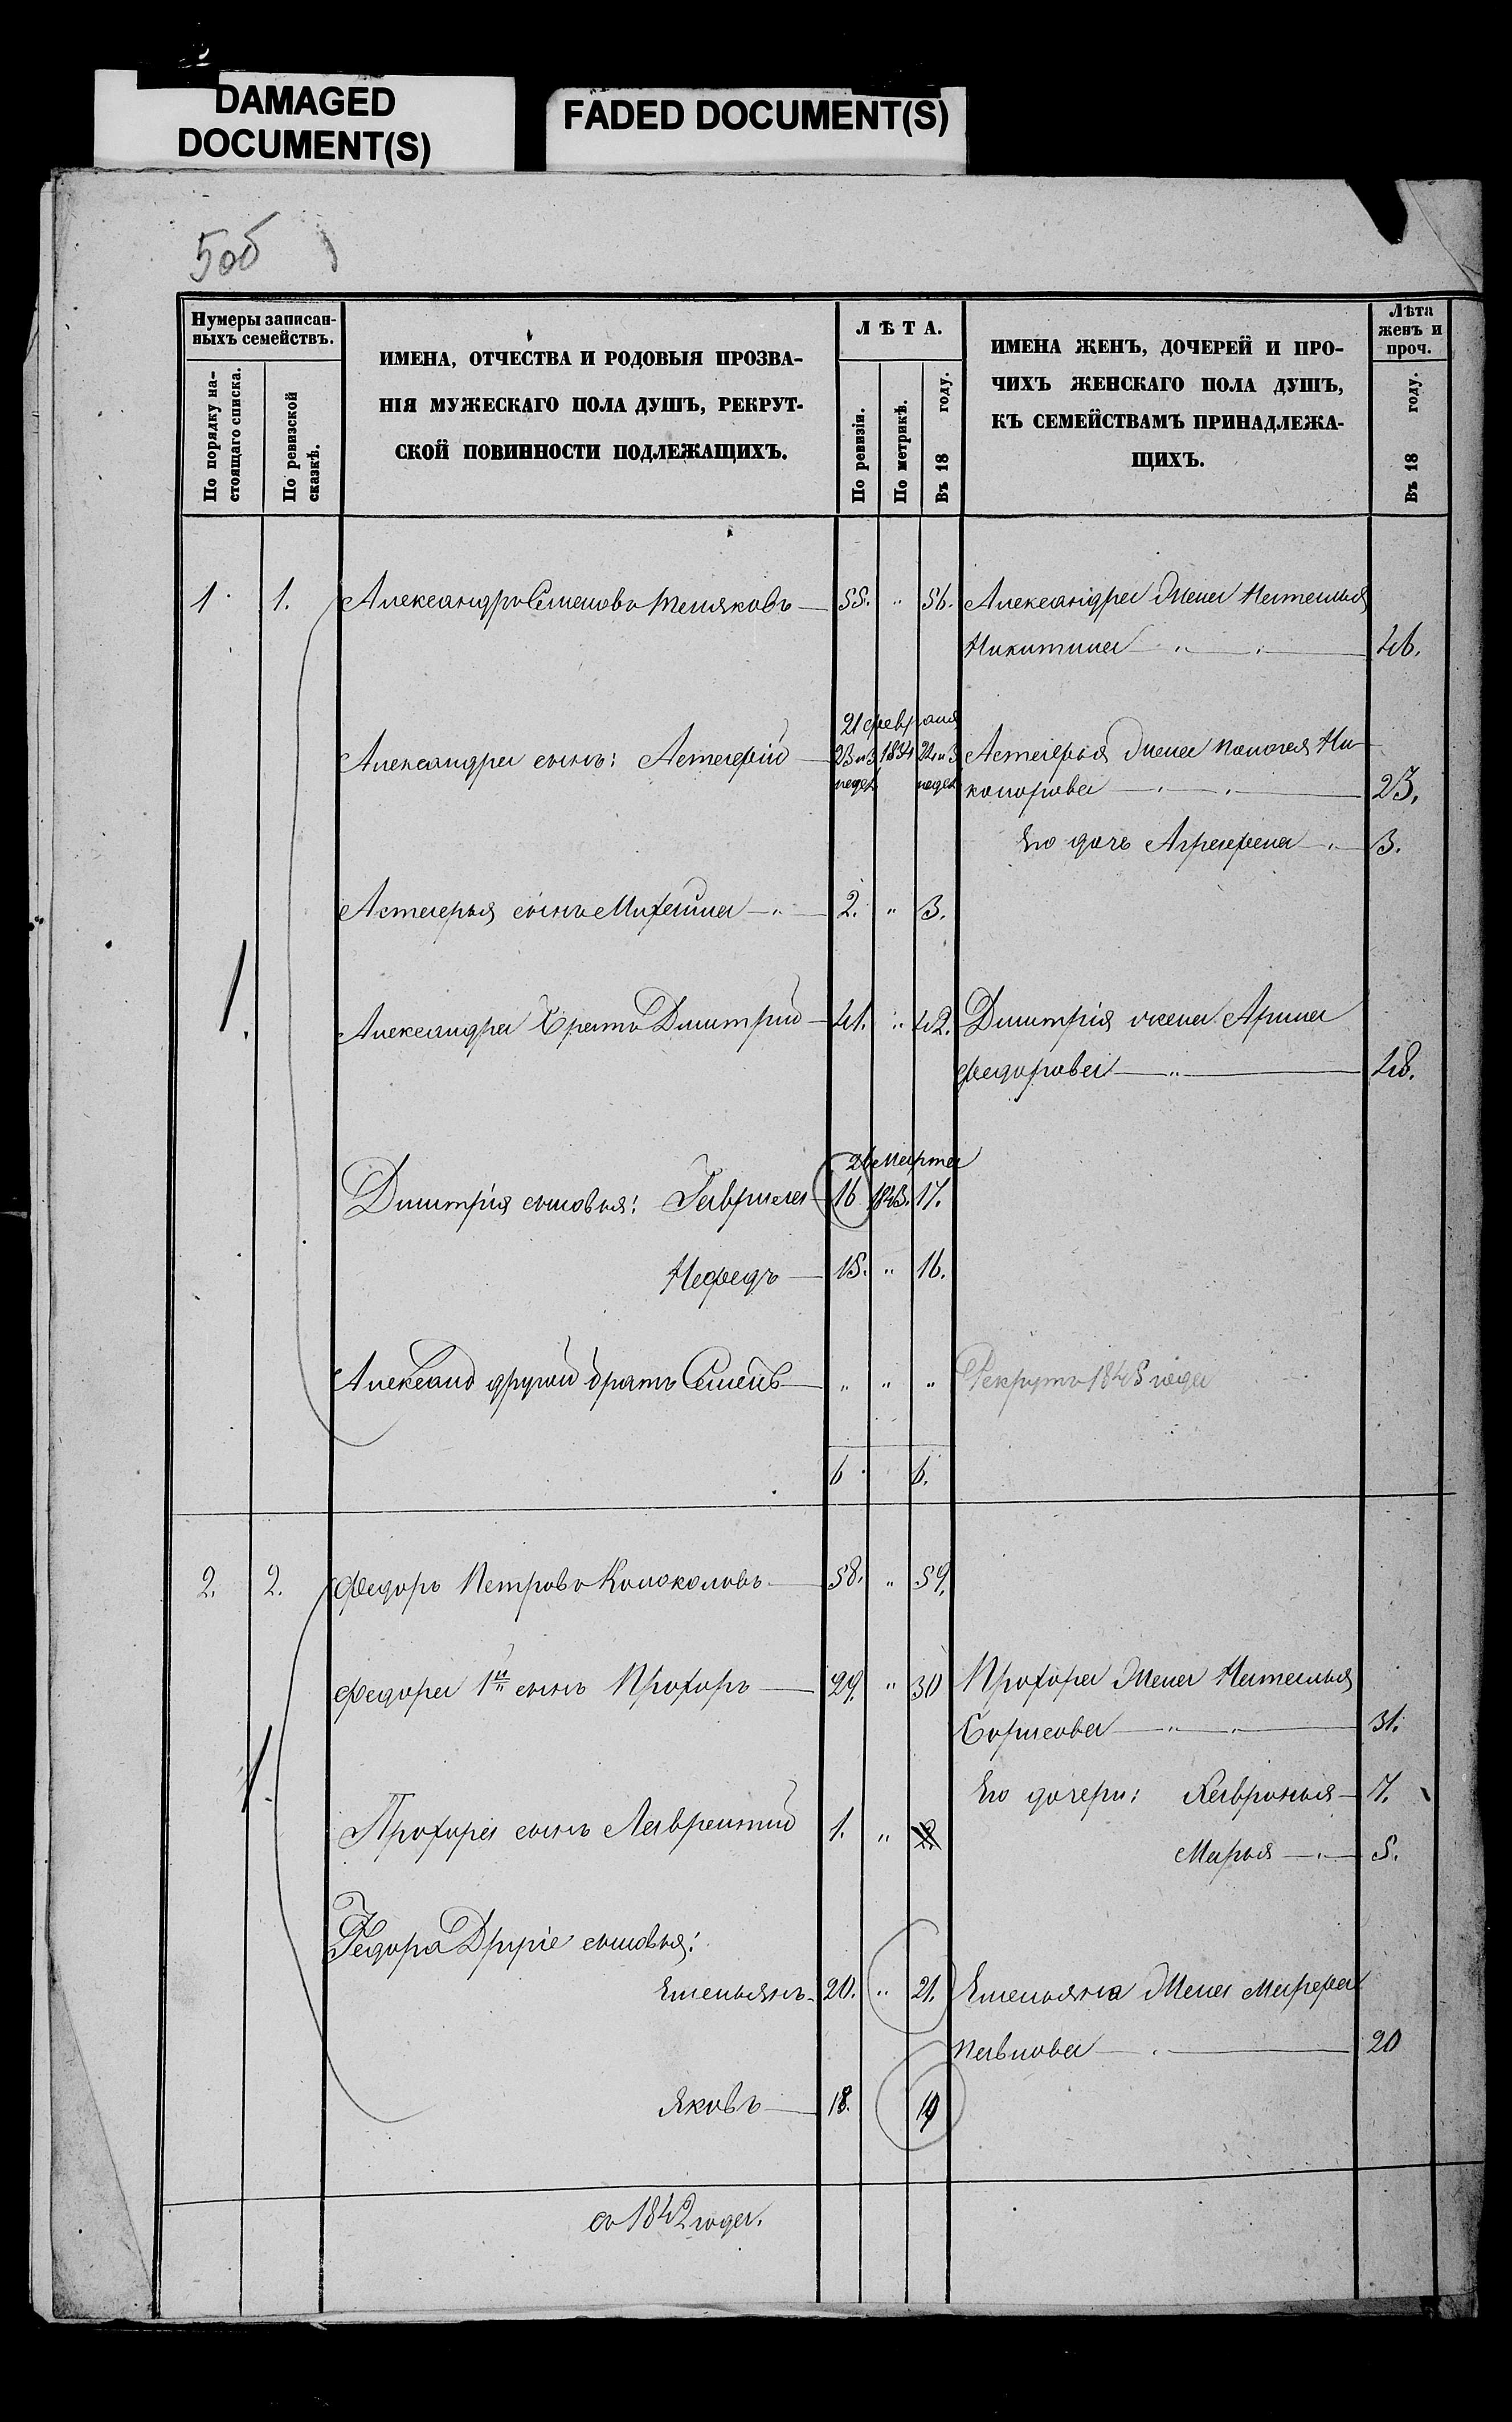 DAMAGED
DOCUMENT(S)
FADED DOCUMENT(S)
5об
Нумеры записан-
ныхъ семействъ.
По порядку на-
стоящаго списка.
По ревизской
сказкѣ.
ИМЕНА, ОТЧЕСТВА И РОДОВЫЯ ПРОЗВА-
НІЯ МУЖЕСКАГО ПОЛА ДУШЪ, РЕКРУТ-
СКОЙ ПОВИННОСТИ ПОДЛЕЖАЩИХЪ.
ЛѢТА.
По ревизіи.
По метрикѣ.
Въ 18 году.
ИМЕНА ЖЕНЪ, ДОЧЕРЕЙ И ПРО-
ЧИХЪ ЖЕНСКАГО ПОЛА ДУШЪ,
КЪ СЕМЕЙСТВАМЪ ПРИНАДЛЕЖА-
ЩИХЪ.
Лѣта
женъ и
проч.
Въ 18 году.
1. 1. Александръ Семеновъ Теляковъ 55. " 56. Александра Жена Наталья
Никитина 46.
21 февраля
Александра сынъ: Астафій 23 и 3 1834 24 и 3 Астафья Жена Палагея Ни-
недел недел канорова 23.
Его дочь Аграфена 3.
Астафья сынъ Михайла 2. " 3.
Александра Братъ Дмитрій 41. " 42. Дмитрія жена Арина
Федорова 48.
26 Марта
Дмитрія сыновья: Гаврила 16 1843. 17.
Нефедъ 15. " 16.
Александ другой братъ Семенъ " " " Рекрутъ 1845 года
6. 6.
2. 2. Федоръ Петровъ Колоколовъ 58. " 59.
Федора 1й сынъ Прохоръ 29. " 30 Прохора Жена Наталья
Борисова 31.
Его дочери: Хавронья 7.
Прохора сынъ Лаврентий 1. " 2.
Марья 5.
Федора Другіе сыновья:
Емельянъ 20. " 21. Емельяна Жена Марфа
Павлова 20
Яковъ 18. 19
съ 1842 года.